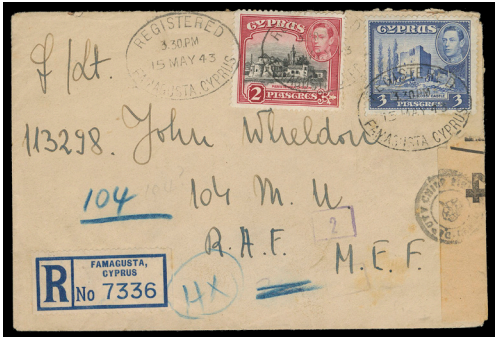 REGISTERED
3.30 PM
15 MAY 43
FAMAGUSTA, CYPRUS
CYPRUS
2 PIASTRES 2
CYPRUS
3 PIASTRES 3
3.30 PM
15 MAY 43
FAMAGUSTA CYPRUS
F/Lt.
113298. John Wheldon
104
104 M. U
R.A.F.
2
M.E.F.
FAMAGUSTA,
CYPRUS
R No 7336
HX